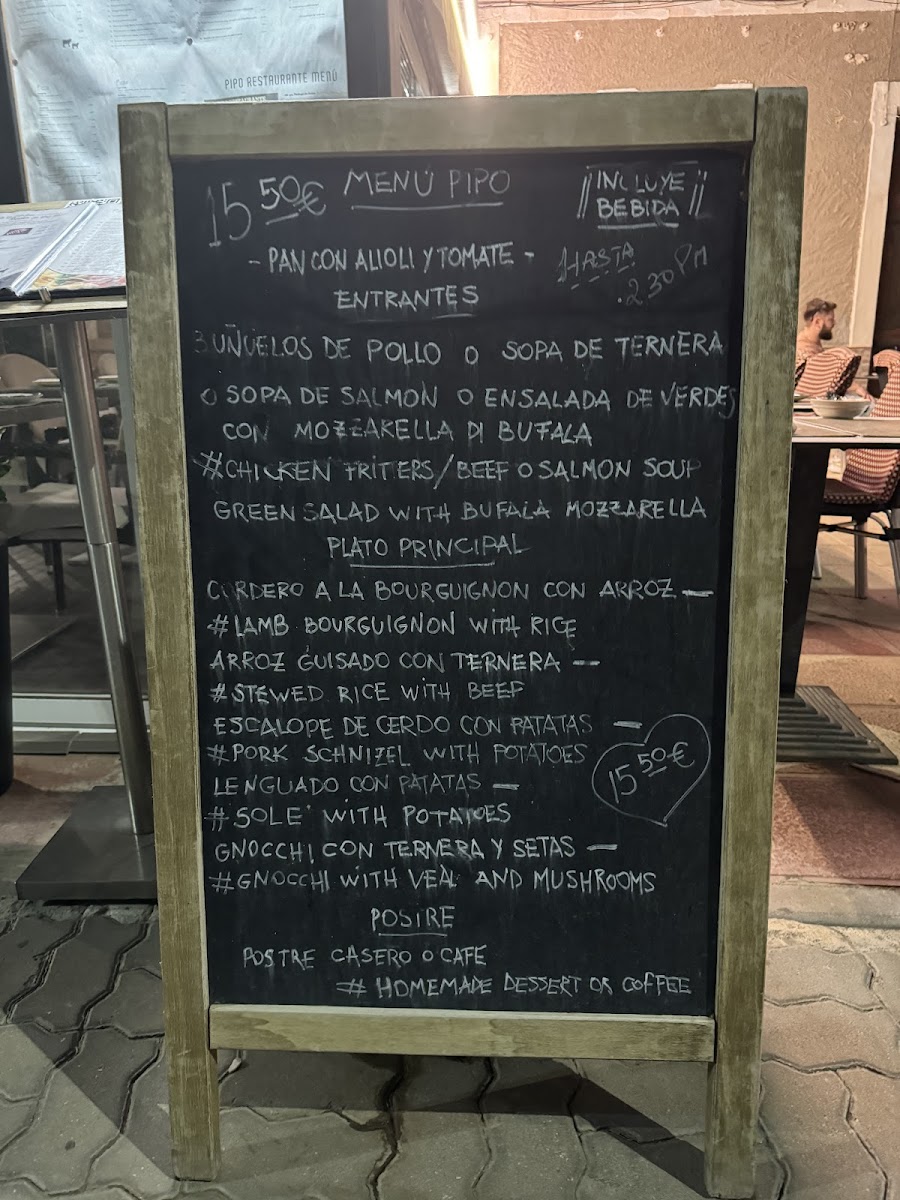 PIPO RESTAURANTE MENÚ
15 50€ MENÚ PIPO ¡¡ INCLUYE BEBIDA ¡¡
- PAN CON ALIOLI Y TOMATE - HASTA 2 30 PM
ENTRANTES
BUÑUELOS DE POLLO O SOPA DE TERNERA
O SOPA DE SALMON O ENSALADA DE VERDES
CON MOZZARELLA DI BUFALA
#CHICKEN FRITTERS/BEEF O SALMON SOUP
GREEN SALAD WITH BUFALA MOZZARELLA
PLATO PRINCIPAL
CORDERO A LA BOURGUIGNON CON ARROZ —
#LAMB BOURGUIGNON WITH RICE
ARROZ GUISADO CON TERNERA —
#STEWED RICE WITH BEEF
ESCALOPE DE CERDO CON PATATAS —
#PORK SCHNIZEL WITH POTATOES
15 50€
LENGUADO CON PATATAS —
#SOLE WITH POTATOES
GNOCCHI CON TERNERA Y SETAS —
#GNOCCHI WITH VEAL AND MUSHROOMS
POSTRE
POSTRE CASERO O CAFE
# HOMEMADE DESSERT OR COFFEE